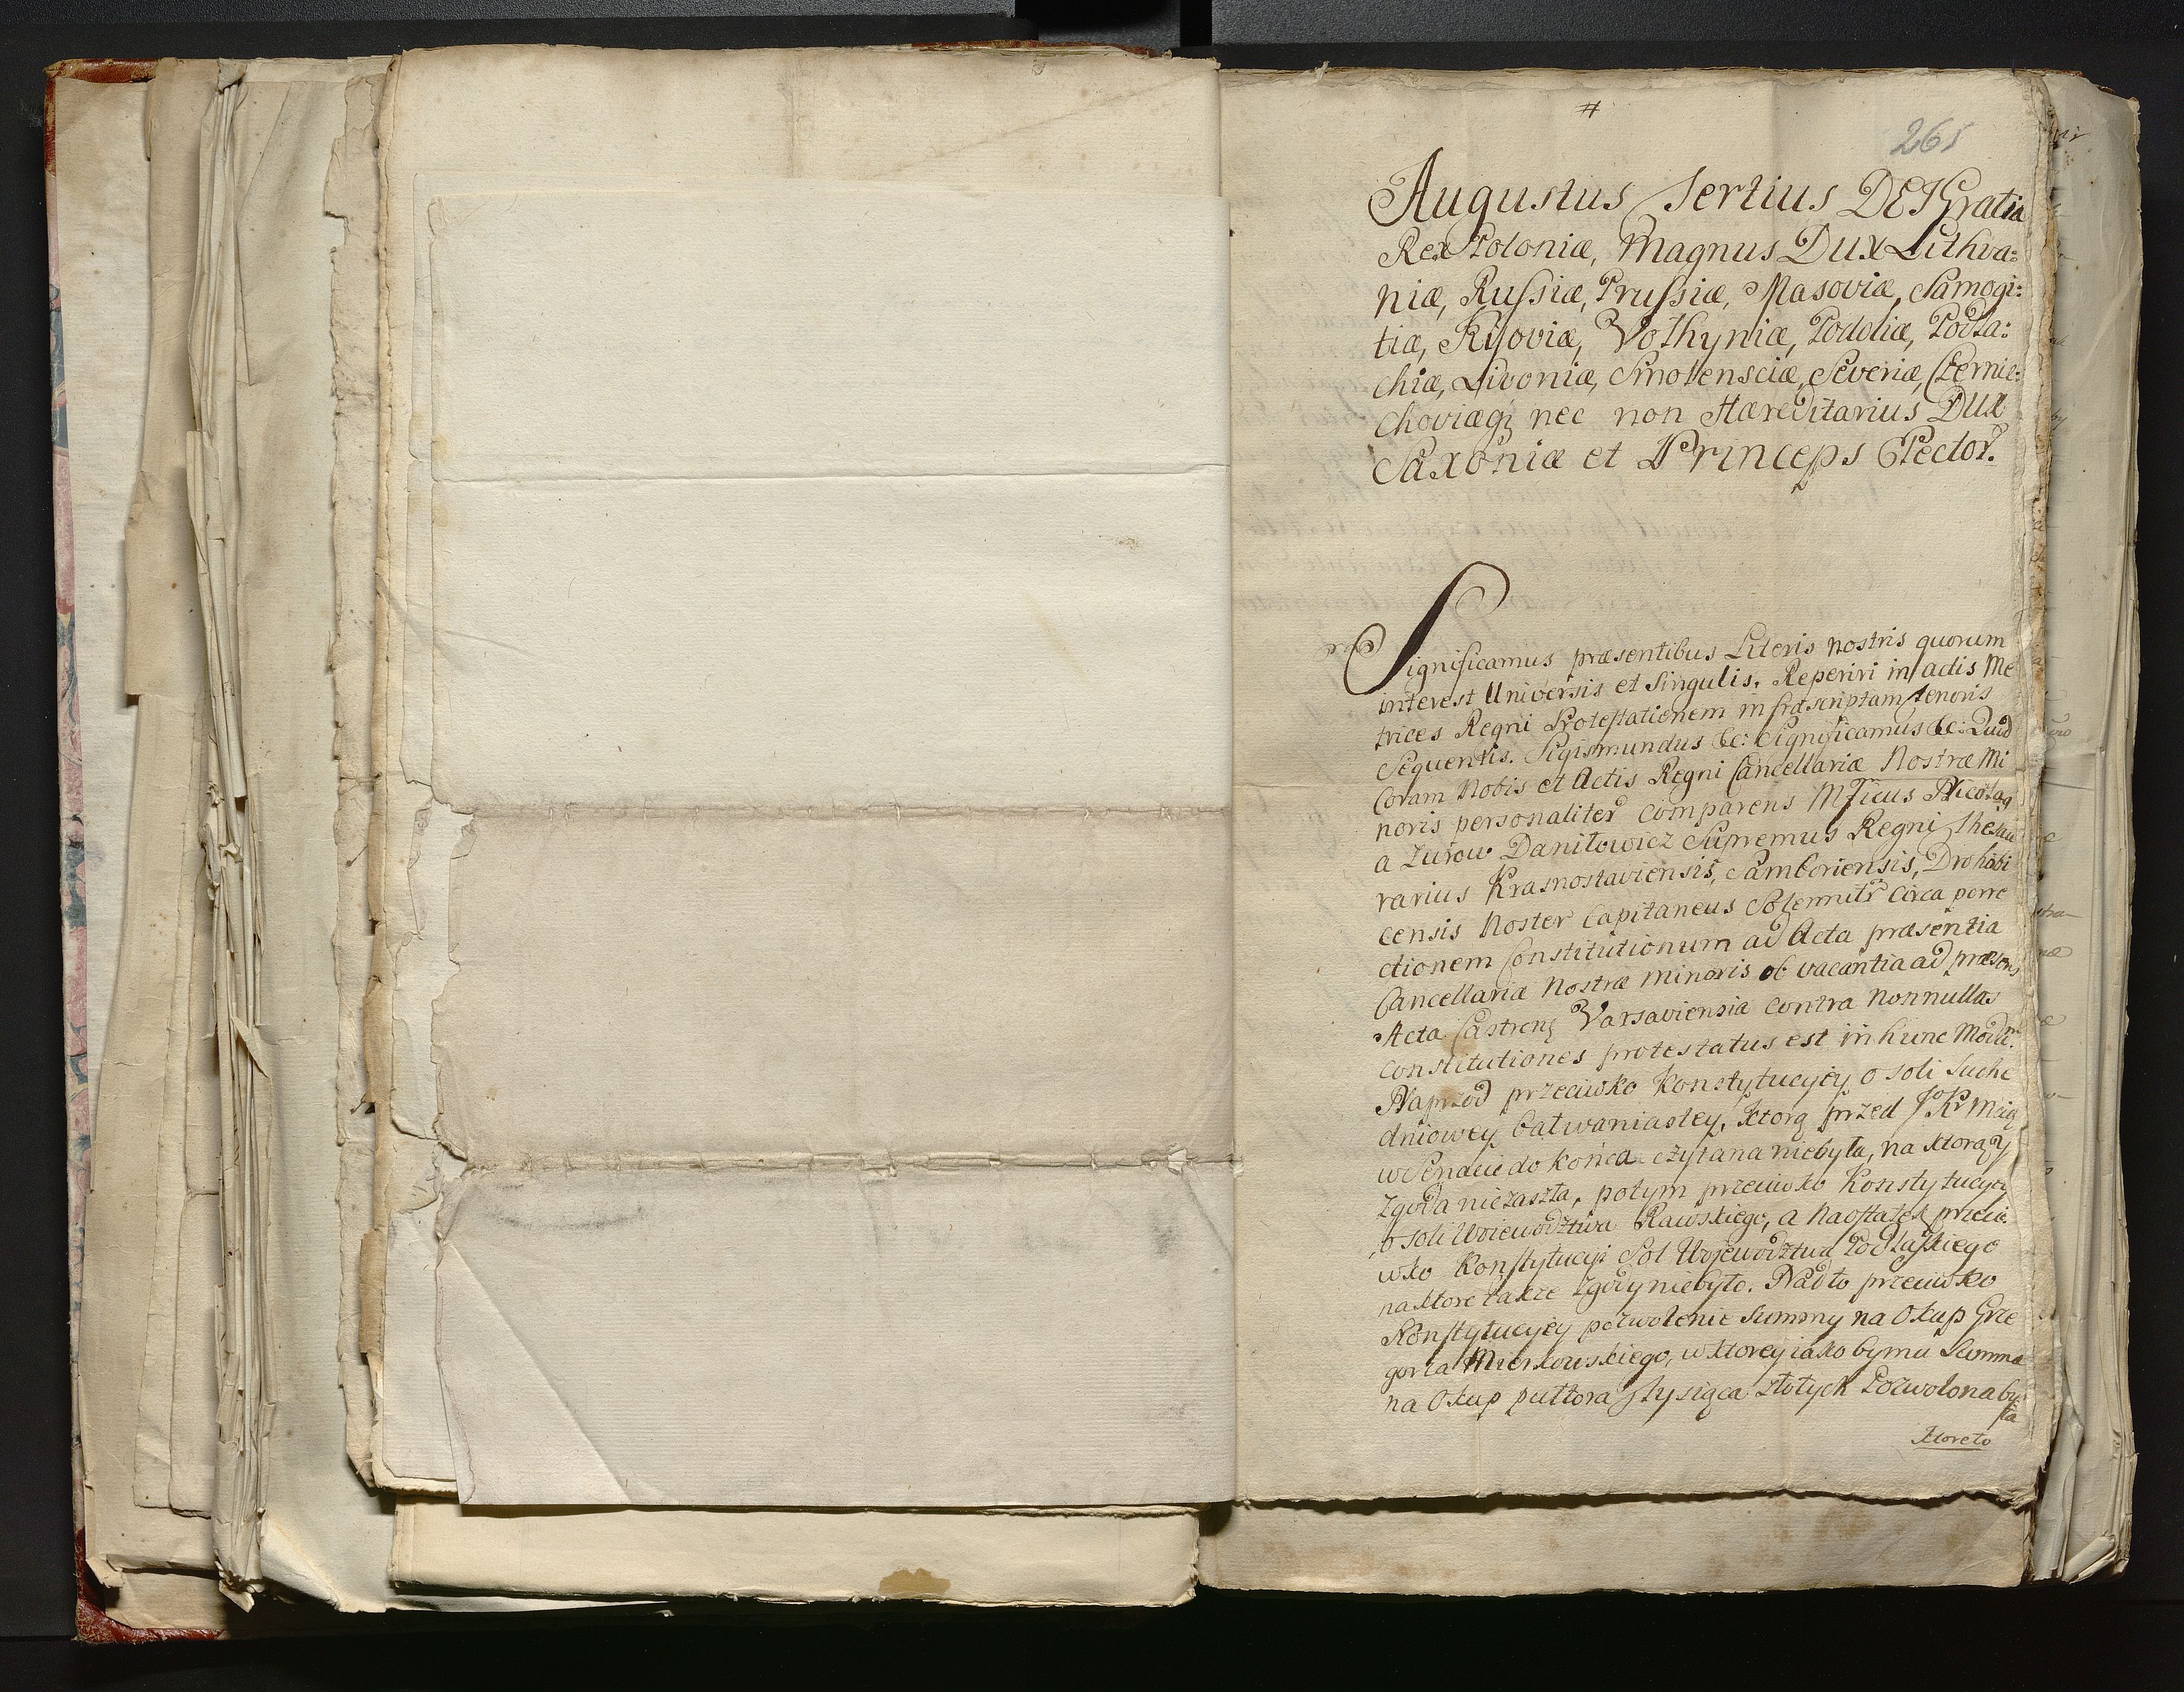 #
265
Augustus Tertius DEI Gratia
Rex Poloniæ, Magnus Dux Lithva:
niæ, Russiæ, Prussiæ, Masoviæ, Samogi:
tiæ, Kijoviæ, Volhyniæ, Podoliæ, Podla:
chiæ, Livoniæ, Smolensciæ, Severiæ, Czernie:
choviæq; nec non Hæreditarius DUX
Saxoniæ et Princeps Elector.
Significamus præsentibus Literis nostris quorum
interest Universis et Singulis. Reperiri in actis Me
trices Regni Protestationem infrascriptam tenoris
Sequentis. Sigismundus &c: Significamus &c: Quod
Coram Nobis et Actis Regni Cancellariæ Nostræ Mi
noris personaliter Comparens Mficus Nicolaq
a Zurow Daniłowicz Supremus Regni Thesau
rarius Krasnostaviensis, Samboriensis, Drohobi
censis Noster Capitaneus Solemnitr Circa porre
ctionem Constitutionum ad Acta præsentia
Cancellariæ Nostræ Minoris ob vacantia ad præsens
Acta Castrens Varsaviensia Contra Nonnullas
Constitutiones protestatus est in hunc Modū.
Naprzod przeciwko Konstytucyey o soli Suche
dniowey bałwaniastey, ktorą przed JKr Mcią
w Senacie do końca czytana niebyła, na ktorąży
zgoda niezaszła, potym przeciwko Konstytucyey
o soli Woiewodztwa Rawskiego, a naostatek przeci
wko Konstytucyi Sol Wojewodztwa Podlaskiego
na ktore także zgody niebyło. Nadto przeciwko
Konstytucyey pozwolenie Summy na Okup Grze
gorza Mierkowskiego, w ktorey iakoby mu Summa
na Okup pułtora stysiąca złotych Pozwolona by
ła
ktore to